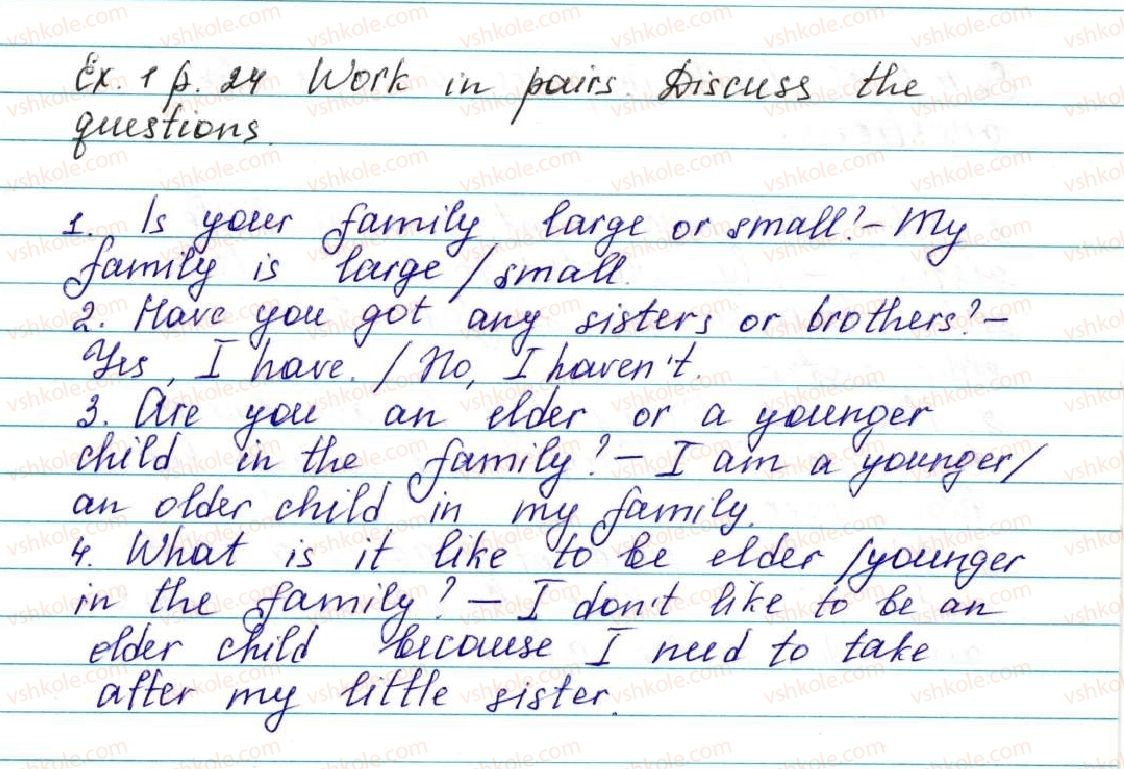 Ex. 1 p. 24 Work in pairs. Discuss the
questions.
1. Is your family large or small? – My
family is large / small.
2. Have you got any sisters or brothers? –
Yes, I have. / No, I haven't.
3. Are you an elder or a younger
child in the family? – I am a younger/
an older child in my family.
4. What is it like to be elder /younger
in the family? – I don't like to be an
elder child because I need to take
after my little sister.
vshkole.com